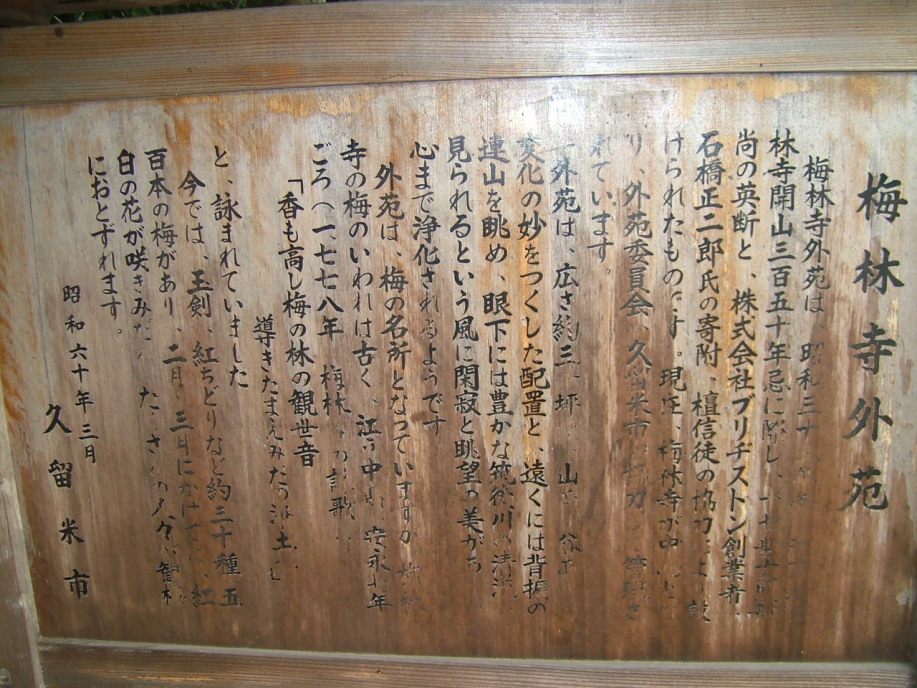 梅林寺外苑
梅林寺外苑は、昭和三十
林寺開山三百五十年忌に際し、
尚の英断と、株式会社ブリヂストン創業者
石橋正二郎氏の寄附、檀信徒の協力により設
けられたものです。現在、梅林寺が中
り、外苑委員会、久留米市
れています。
外苑は、広さ約三 坪 山
変化の妙をつくした配置と、遠くには背振の
連山を眺め、眼下には豊かな筑後川の清流
見られるという風に閑寂と眺望の美から
心まで浄化されるようです
外苑は、梅の名所となっていますが
寺の梅のいわれは古く、江戸中期、安永 年
ごろ(一七七八年、梅林
「香も高し梅の林の観世音
導きたまえみだの浄土
と、詠まれていました
今では、玉剣、紅ちどりなど約三十種、五
百本の梅があり、二月、三月にかけて、紅
白の花が咲きみだ た さんの人々が
におとずれます。
昭和六十年三月
久留米市